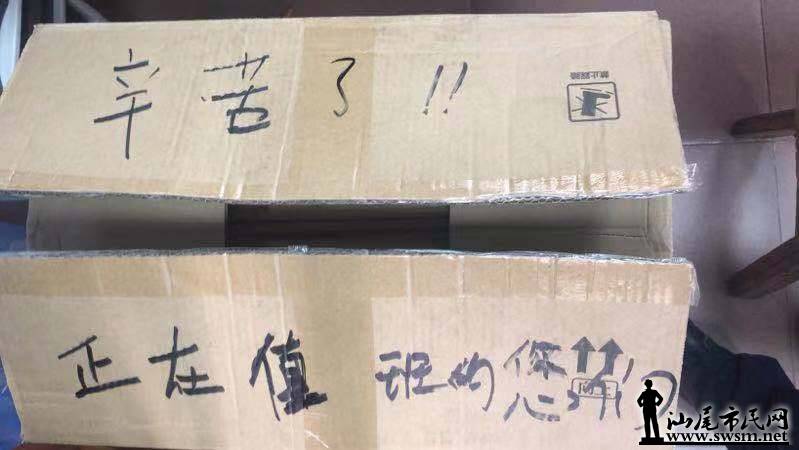 辛苦了!!
禁止踩踏
正在值班的您们
汕尾市民网
www.swsm.net